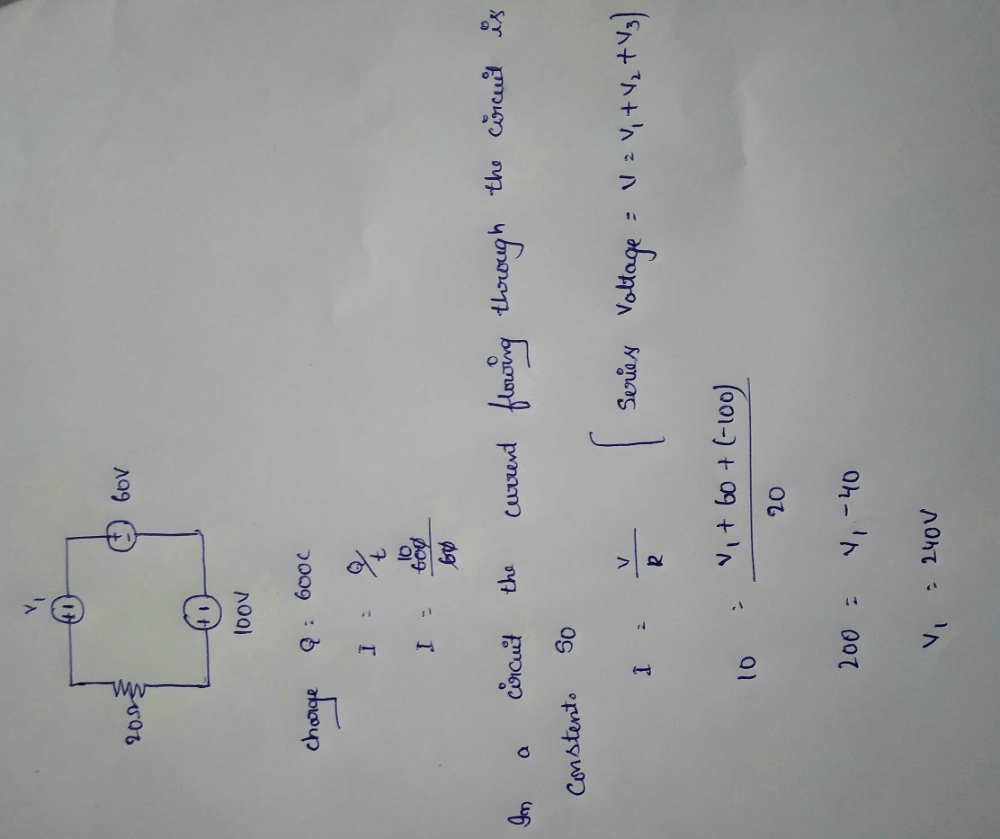 V₁
+ -
20Ω
+ -
60V
+ -
100V
charge Q = 600C
I = Q/t
I = 10 600/60
In a circuit the current flowing through the circuit is
constent. So
I = V/R [ Series Voltage = V = V₁ + V₂ + V₃)
10 = V₁ + 60 + (-100)/20
200 = V₁ - 40
V₁ = 240V